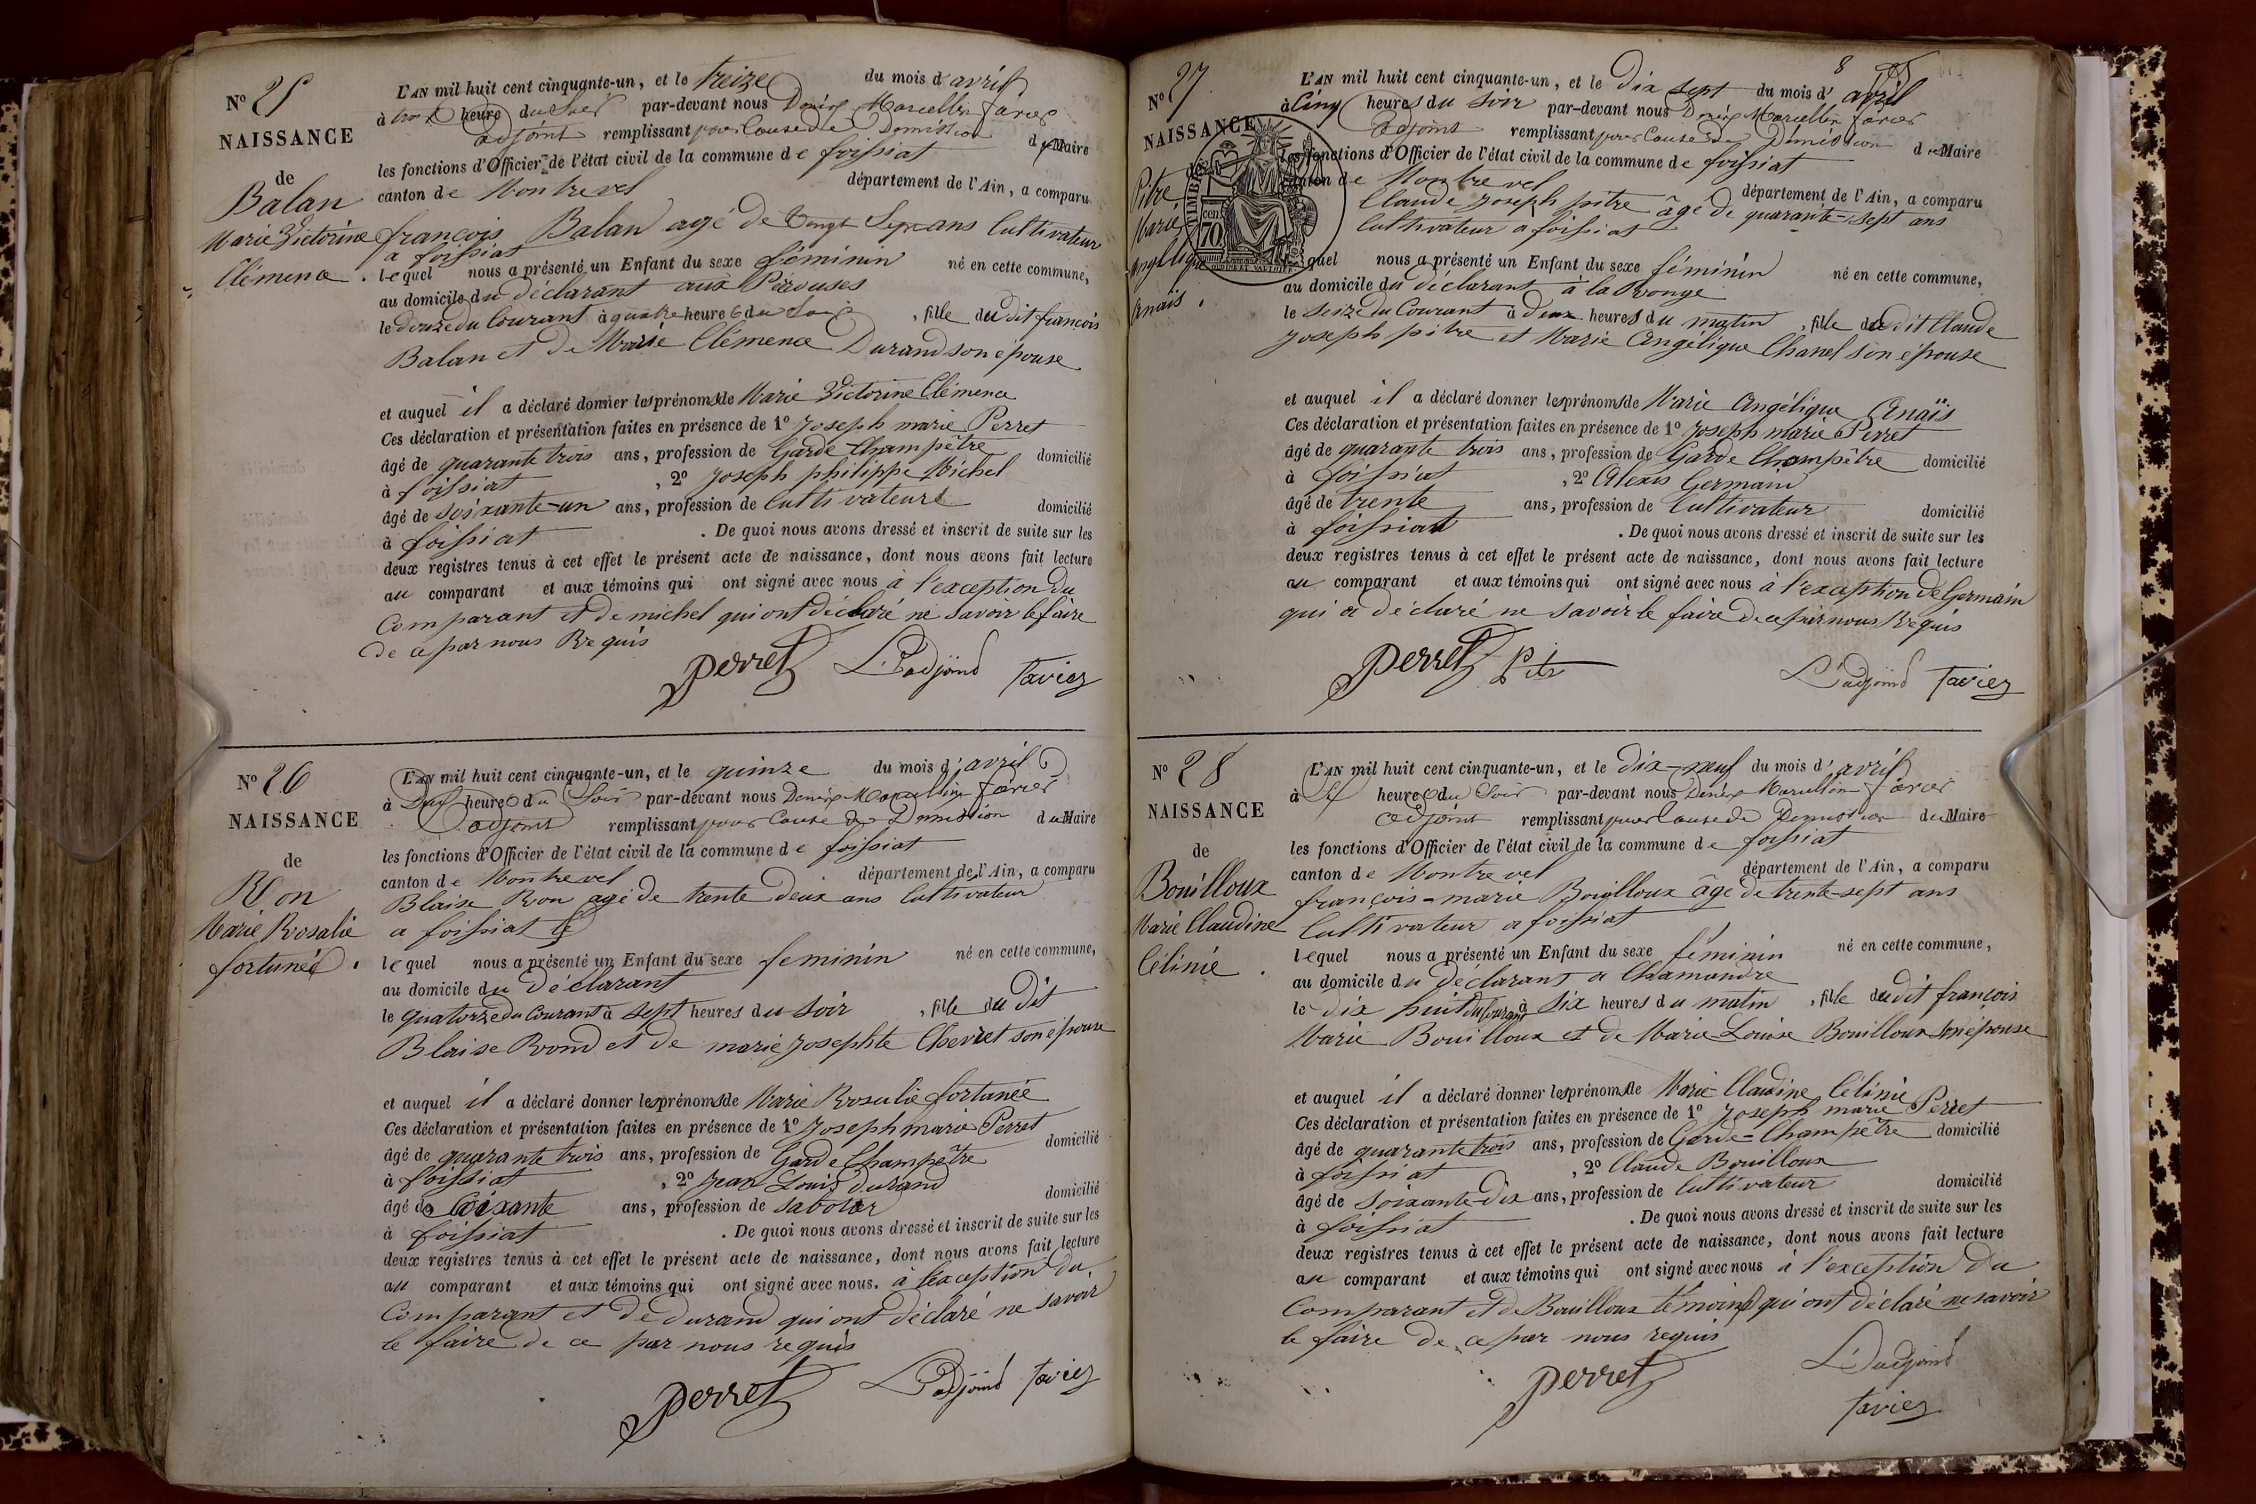 N° 25
NAISSANCE
de
Balan
Marie Victorine
Clémence.
L'AN mil huit cent cinquante-un, et le treize du mois d'avril
à trois heure du Soir par-devant nous Denis Marcellin favier
adjoint remplissant pour Cause de Démission du Maire
les fonctions d'Officier de l'état civil de la commune de foissiat
canton de Montrevel département de l'Ain, a comparu
françois Balan agé de Vingt Sept ans Cultivateur
a foissiat
lequel nous a présenté un Enfant du sexe féminin né en cette commune,
au domicile du déclarant aux Pérouses
le douze du Courant à quatre heures du Soir, fille du dit françois
Balan et de Marie Clémence Durand son épouse
et auquel il a déclaré donner les prénoms de Marie Victorine Clémence
Ces déclaration et présentation faites en présence de 1° Joseph marie Perret
âgé de quarante trois ans, profession de Garde-Champêtre domicilié
à foissiat, 2° Joseph philippe Michel
âgé de soixante-un ans, profession de Cultivateur domicilié
à foissiat. De quoi nous avons dressé et inscrit de suite sur les
deux registres tenus à cet effet le présent acte de naissance, dont nous avons fait lecture
au comparant et aux témoins qui ont signé avec nous à l'exception du
Comparant et de michel qui ont déclaré ne Savoir le faire
de ce par nous Requis
Perret L'adjoind favier
N° 26
NAISSANCE
de
Ron
Marie Rosalie
fortunée.
L'AN mil huit cent cinquante-un, et le quinze du mois d'avril
à heures du Soir par-devant nous Denis Marcellin favier
adjoint remplissant pour Cause de Démission du Maire
les fonctions d'Officier de l'état civil de la commune de foissiat
canton de Montrevel département de l'Ain, a comparu
Blaise Ron agé de trente deux ans Cultivateur
a foissiat
lequel nous a présenté un Enfant du sexe feminin né en cette commune,
au domicile du déclarant
le quatorze du Courant à sept heures du soir, fille du dit
Blaise Rond et de marie Josephte Chevret son épouse
et auquel il a déclaré donner les prénoms de Marie Rosalie fortunée
Ces déclaration et présentation faites en présence de 1° Joseph marie Perret
âgé de quarante trois ans, profession de Garde Champêtre domicilié
à foissiat, 2° Jean Louis durand
âgé de Soixante ans, profession de Sabotier domicilié
à foissiat. De quoi nous avons dressé et inscrit de suite sur les
deux registres tenus à cet effet le présent acte de naissance, dont nous avons fait lecture
au comparant et aux témoins qui ont signé avec nous. à l'exception du
Comparant et de durand qui ont déclaré ne savoir
le faire de ce par nous requis
Perret L'adjoind favier
8
N° 27
NAISSANCE
de
Pitre
Marie
Angélique
Anaïs.
TIMBRE
70
L'AN mil huit cent cinquante-un, et le dix sept du mois d'avril
à Cinq heures du soir par-devant nous Denis Marcellin favier
adjoint remplissant pour Cause de Démission du Maire
les fonctions d'Officier de l'état civil de la commune de foissiat
canton de Montrevel département de l'Ain, a comparu
Claude Joseph pitre âgé de quarante-sept ans
Cultivateur a foissiat
lequel nous a présenté un Enfant du sexe féminin né en cette commune,
au domicile du déclarant à la Ronge
le seize du Courant à deux heures du matin, fille du dit Claude
Joseph pitre et Marie Angélique Chanel son épouse
et auquel il a déclaré donner les prénoms de Marie Angélique Anaïs
Ces déclaration et présentation faites en présence de 1° Joseph marie Perret
âgé de quarante trois ans, profession de Garde Champêtre domicilié
à foissiat, 2° Alexis Germain
âgé de trente ans, profession de Cultivateur domicilié
à foissiat. De quoi nous avons dressé et inscrit de suite sur les
deux registres tenus à cet effet le présent acte de naissance, dont nous avons fait lecture
au comparant et aux témoins qui ont signé avec nous à l'exception de Germain
qui a déclaré ne savoir le faire de ce par nous Requis
Perret Pitr L'adjoind favier
N° 28
NAISSANCE
de
Bouilloux
Marie Claudine
Célinie.
L'AN mil huit cent cinquante-un, et le dix-neuf du mois d'avril
à heures du Soir par-devant nous Denis Marcellin favier
adjoint remplissant pour Cause de Démission du Maire
les fonctions d'Officier de l'état civil de la commune de foissiat
canton de Montrevel département de l'Ain, a comparu
françois-marie Bouilloux âgé de trente-sept ans
Cultivateur a foissiat
lequel nous a présenté un Enfant du sexe féminin né en cette commune,
au domicile du déclarant a Chamandre
le dix huit du Courant à six heures du matin, fille du dit françois
Marie Bouilloux et de Marie Louise Bouilloux son épouse
et auquel il a déclaré donner les prénoms de Marie Claudine Célinie
Ces déclaration et présentation faites en présence de 1° Joseph marie Perret
âgé de quarante trois ans, profession de Garde-Champêtre domicilié
à foissiat, 2° Claude Bouilloux
âgé de soixante-dix ans, profession de Cultivateur domicilié
à foissiat. De quoi nous avons dressé et inscrit de suite sur les
deux registres tenus à cet effet le présent acte de naissance, dont nous avons fait lecture
au comparant et aux témoins qui ont signé avec nous à l'exception du
Comparant et de Bouilloux témoins qui ont déclaré ne savoir
le faire de ce par nous requis
Perret L'adjoind
favier